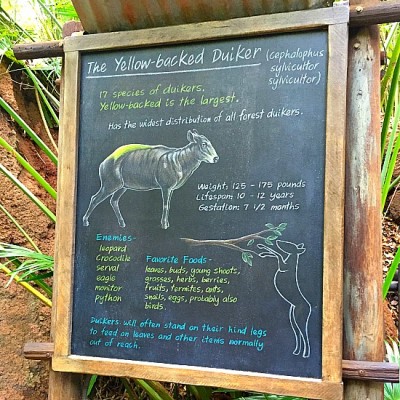 The Yellow-backed Duiker (cephalophus
sylvicultor
sylvicultor)
17 species of duikars.
Yellow-backed is the largest.
Has the widest distribution of all forest duikers.
Weight: 125 - 175 pounds
Lifespan: 10 - 12 years
Gestation: 7 1/2 months
Enemies-
leopard
Crocodile
serval
eagle
monitor
python
Favorite Foods-
leaves, buds, young shoots,
grasses, herbs, berries,
fruits, termites, ants,
snails, eggs, probably also
birds.
Duikers will often stand on their hind legs
to feed on leaves and other items normally
out of reach.